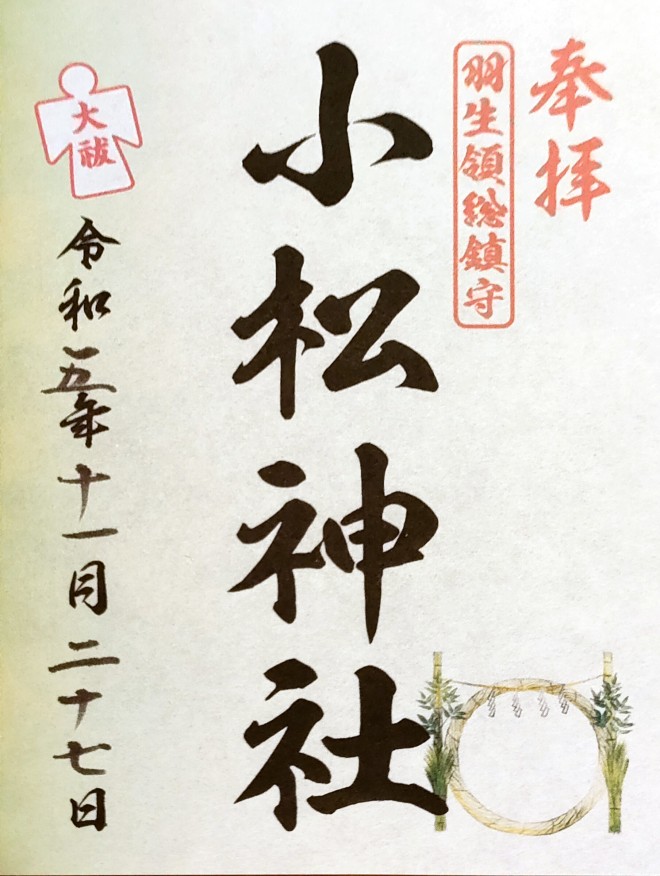 奉拝
羽生領総鎮守
小松神社
大祓
令和五年十一月二十七日